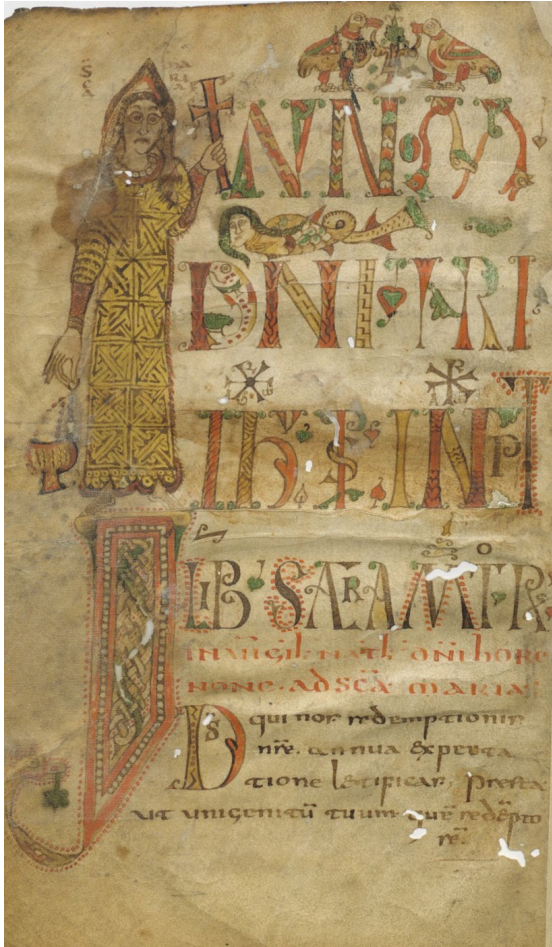 SCA MARIA
IN NOM
DNI NRI
LIB SACRAMTOR
IN UIGIL NATL DNI HORA
NONE · AD SCA MARIA
DS qui nos redemptionis
nre. annua expecta
tione letificas, presta
ut unigenitū tuum quē redēpto
rē.